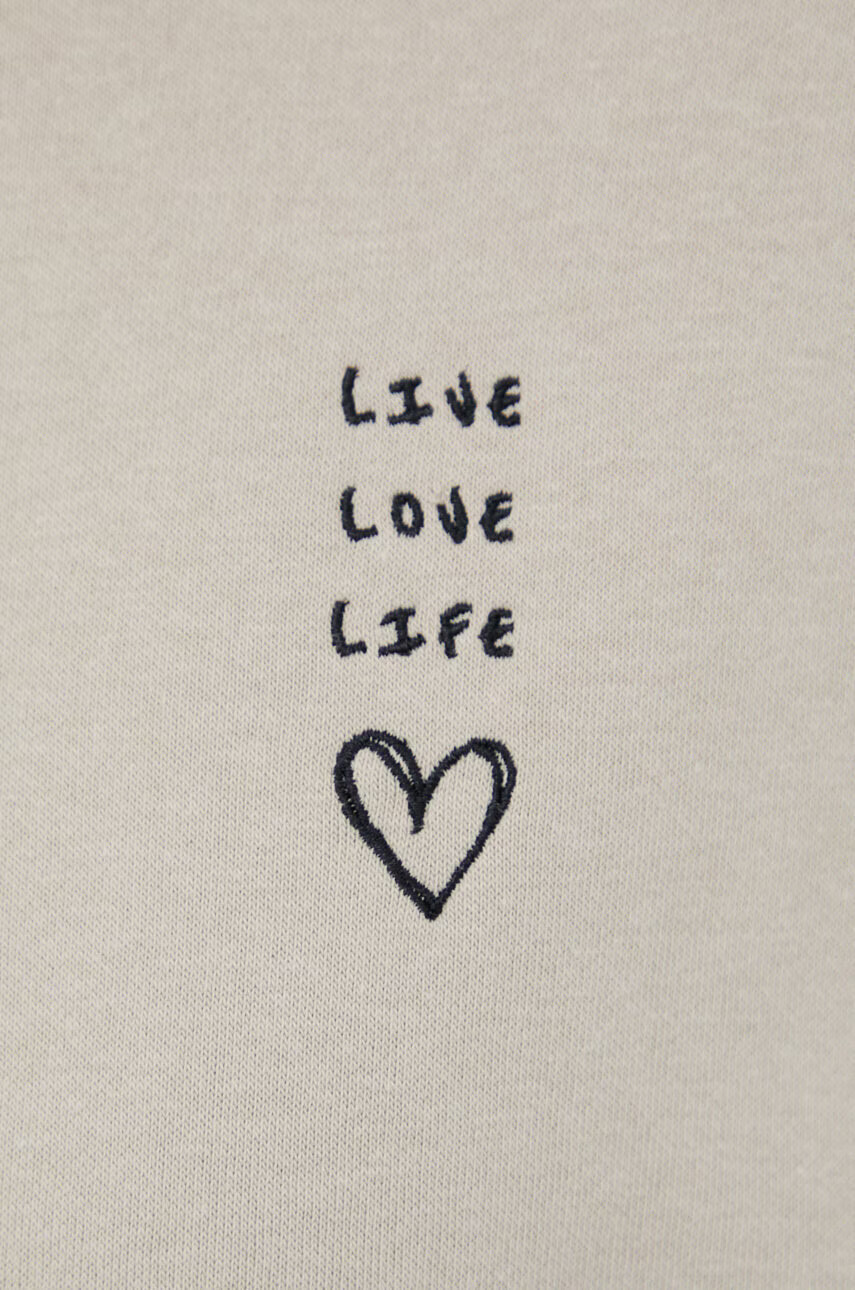 LIVE
LOVE
LIFE